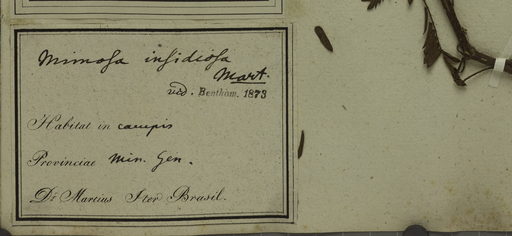 Mimosa insidiosa
Mart.
vid. Bentham. 1873
Habitat in campis
Provinciae Min. Gen.
Dr Martius Iter Brasil.